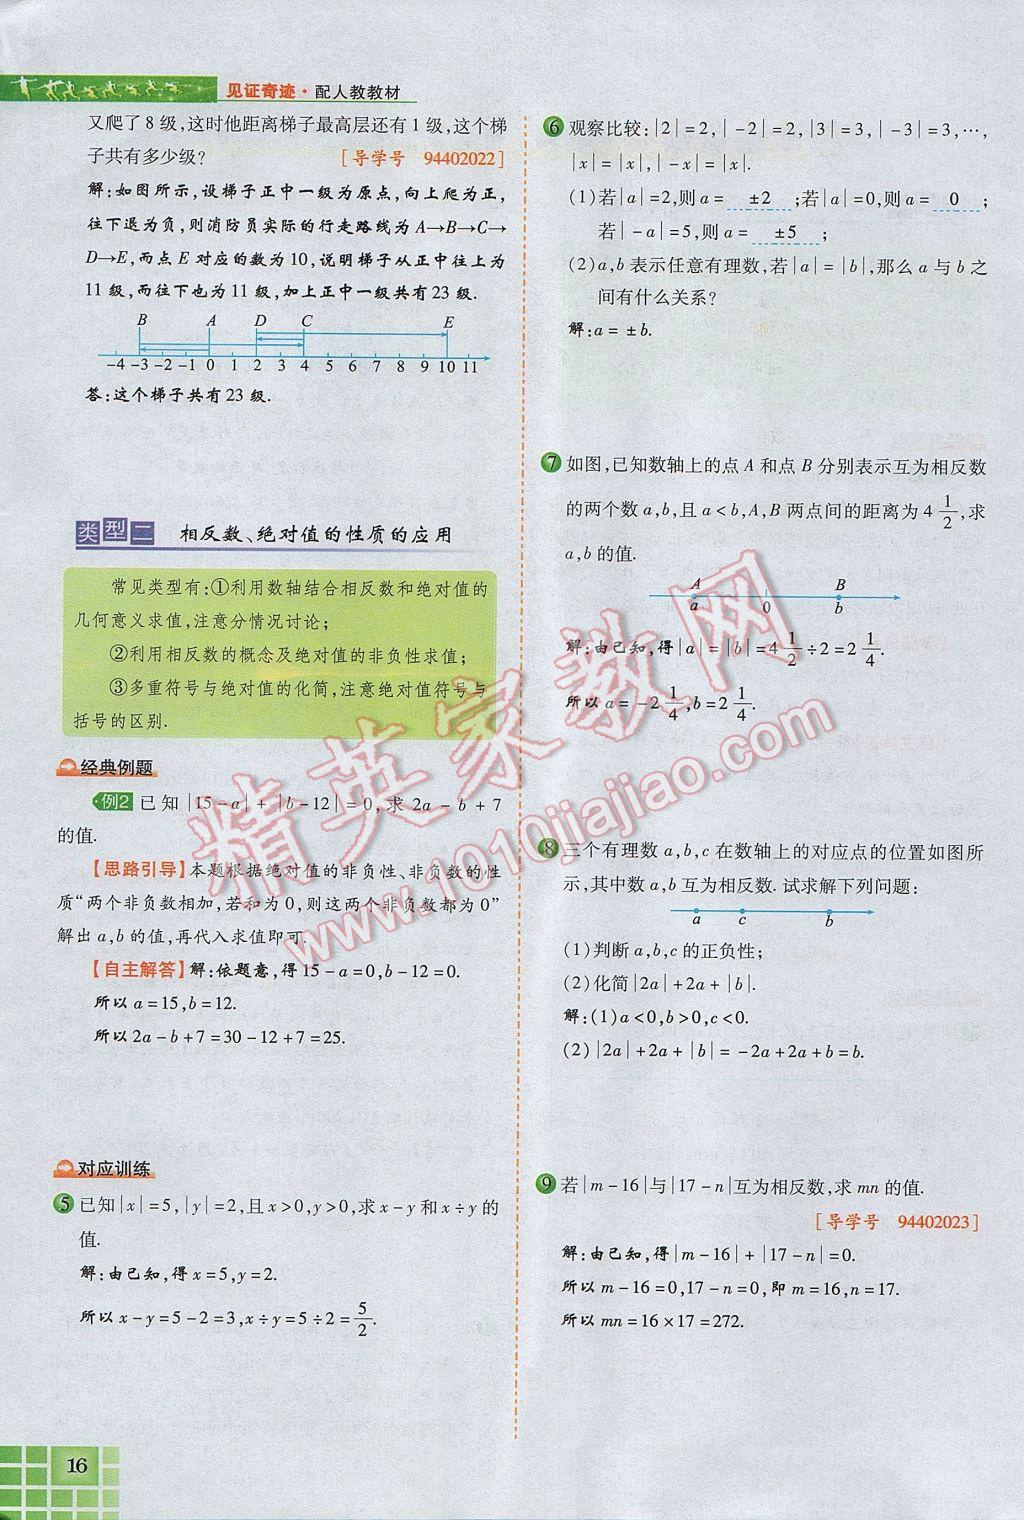 见证奇迹·配人教教材
又爬了8级,这时他距离梯子最高层还有1级,这个梯
子共有多少级? [导学号 94402022]
解:如图所示,设梯子正中一级为原点,向上爬为正,
往下退为负,则消防员实际的行走路线为A→B→C→
D→E,而点E对应的数为10,说明梯子从正中往上为
11级,而往下也为11级,加上正中一级共有23级.
B A D C E
-4 -3 -2 -1 0 1 2 3 4 5 6 7 8 9 10 11
答:这个梯子共有23级.
类型二 相反数、绝对值的性质的应用
常见类型有:①利用数轴结合相反数和绝对值的
几何意义求值,注意分情况讨论;
②利用相反数的概念及绝对值的非负性求值;
③多重符号与绝对值的化简,注意绝对值符号与
括号的区别.
经典例题
例2 已知|15-a|+|b-12|=0,求2a-b+7
的值.
【思路引导】本题根据绝对值的非负性、非负数的性
质“两个非负数相加,若和为0,则这两个非负数都为0”
解出a,b的值,再代入求值即可.
【自主解答】解:依题意,得15-a=0,b-12=0.
所以a=15,b=12.
所以2a-b+7=30-12+7=25.
对应训练
5 已知|x|=5,|y|=2,且x>0,y>0,求x-y和x÷y的
值.
解:由已知,得x=5,y=2.
所以x-y=5-2=3,x÷y=5÷2=5/2.
16
6 观察比较:|2|=2,|-2|=2,|3|=3,|-3|=3,…,
|x|=|x|,|-x|=|x|.
(1)若|a|=2,则a= ±2 ;若|a|=0,则a= 0 ;
若|-a|=5,则a= ±5 ;
(2)a,b表示任意有理数,若|a|=|b|,那么a与b之
间有什么关系?
解:a=±b.
7 如图,已知数轴上的点A和点B分别表示互为相反数
的两个数a,b,且a<b,A,B两点间的距离为4 1/2,求
a,b的值.
A B
a 0 b
解:由已知,得|a|=|b|=4 1/2÷2=2 1/4.
所以a=-2 1/4,b=2 1/4.
8 三个有理数a,b,c在数轴上的对应点的位置如图所
示,其中数a,b互为相反数.试求解下列问题:
a c b
(1)判断a,b,c的正负性;
(2)化简|2a|+2a+|b|.
解:(1)a<0,b>0,c<0.
(2)|2a|+2a+|b|=-2a+2a+b=b.
9 若|m-16|与|17-n|互为相反数,求mn的值.
[导学号 94402023]
解:由已知,得|m-16|+|17-n|=0.
所以m-16=0,17-n=0,即m=16,n=17.
所以mn=16×17=272.
精英家教网
www.1010jiajiao.com